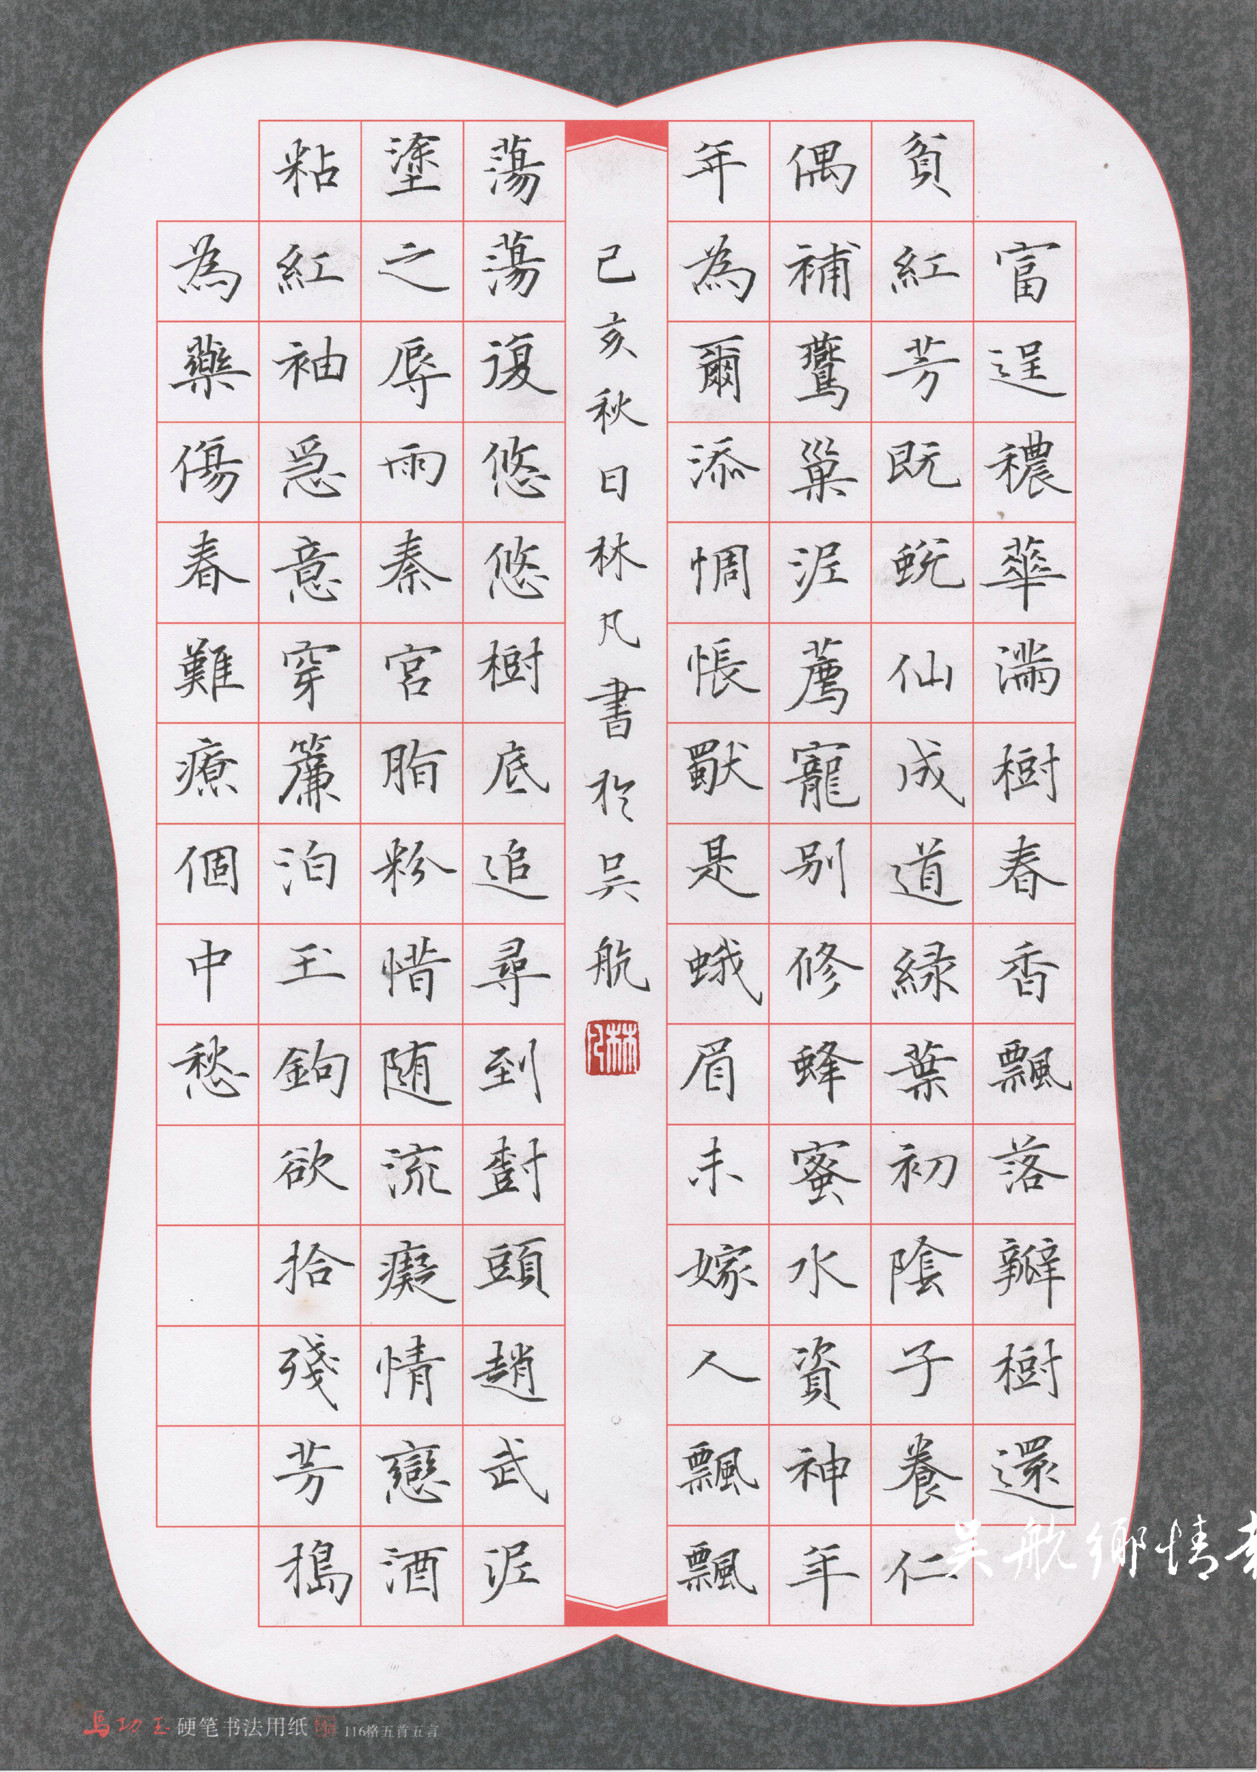 富逞穠華滿樹春香飄落瓣樹還
貧紅芳既蛻仙成道綠葉初陰子養仁
偶補鶯巢泥薦寵別修蜂蜜水資神年
年為爾添惆悵獸是蛾眉未嫁人飄飄
己亥秋日林凡書於吳航
蕩蕩復悠悠樹底追尋到對頭趙武泥
塗之辱雨秦宮脂粉惜随流癡情戀酒
粘紅袖急意穿簾泊玉鉤欲拾殘芳搗
為藥傷春難療個中愁
吴航鄉情
硬笔书法用纸
116格五首五言